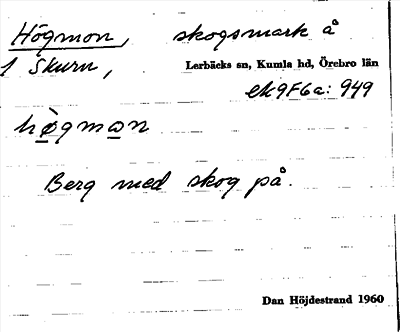 Högmon, skogsmark å
1 Skurn,
Lerbäcks sn, Kumla hd, Örebro län
ek9F6a: 949
hø̀gmon
Berg med skog på.
Dan Höjdestrand 1960